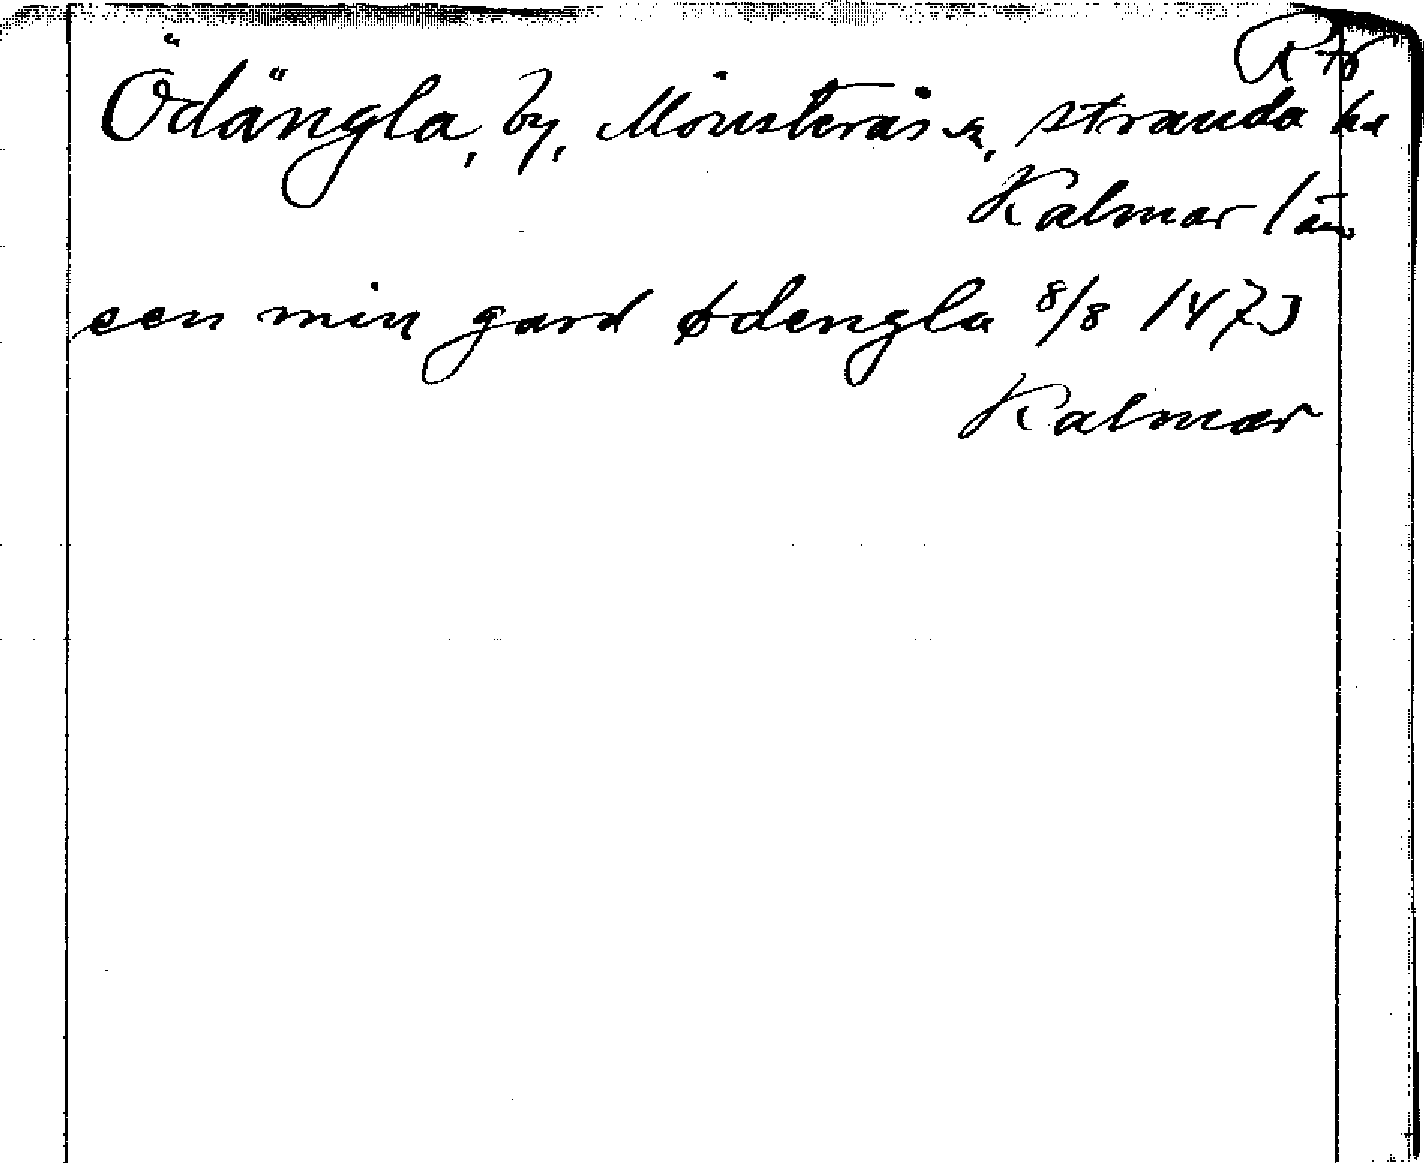 Ödängla, by, Mönsterås sn, Stranda hd
Kalmar län
een min gard ødengla 8/8 1473
Kalmar